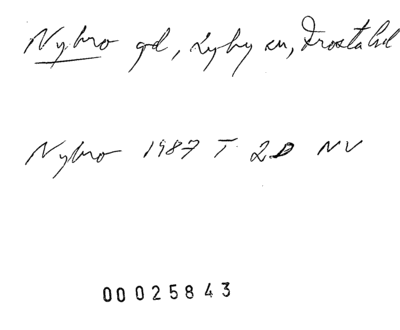 Nybro gd, Lyby sn, Frosta hd
Nybro 1987 T 2D NV
00025843